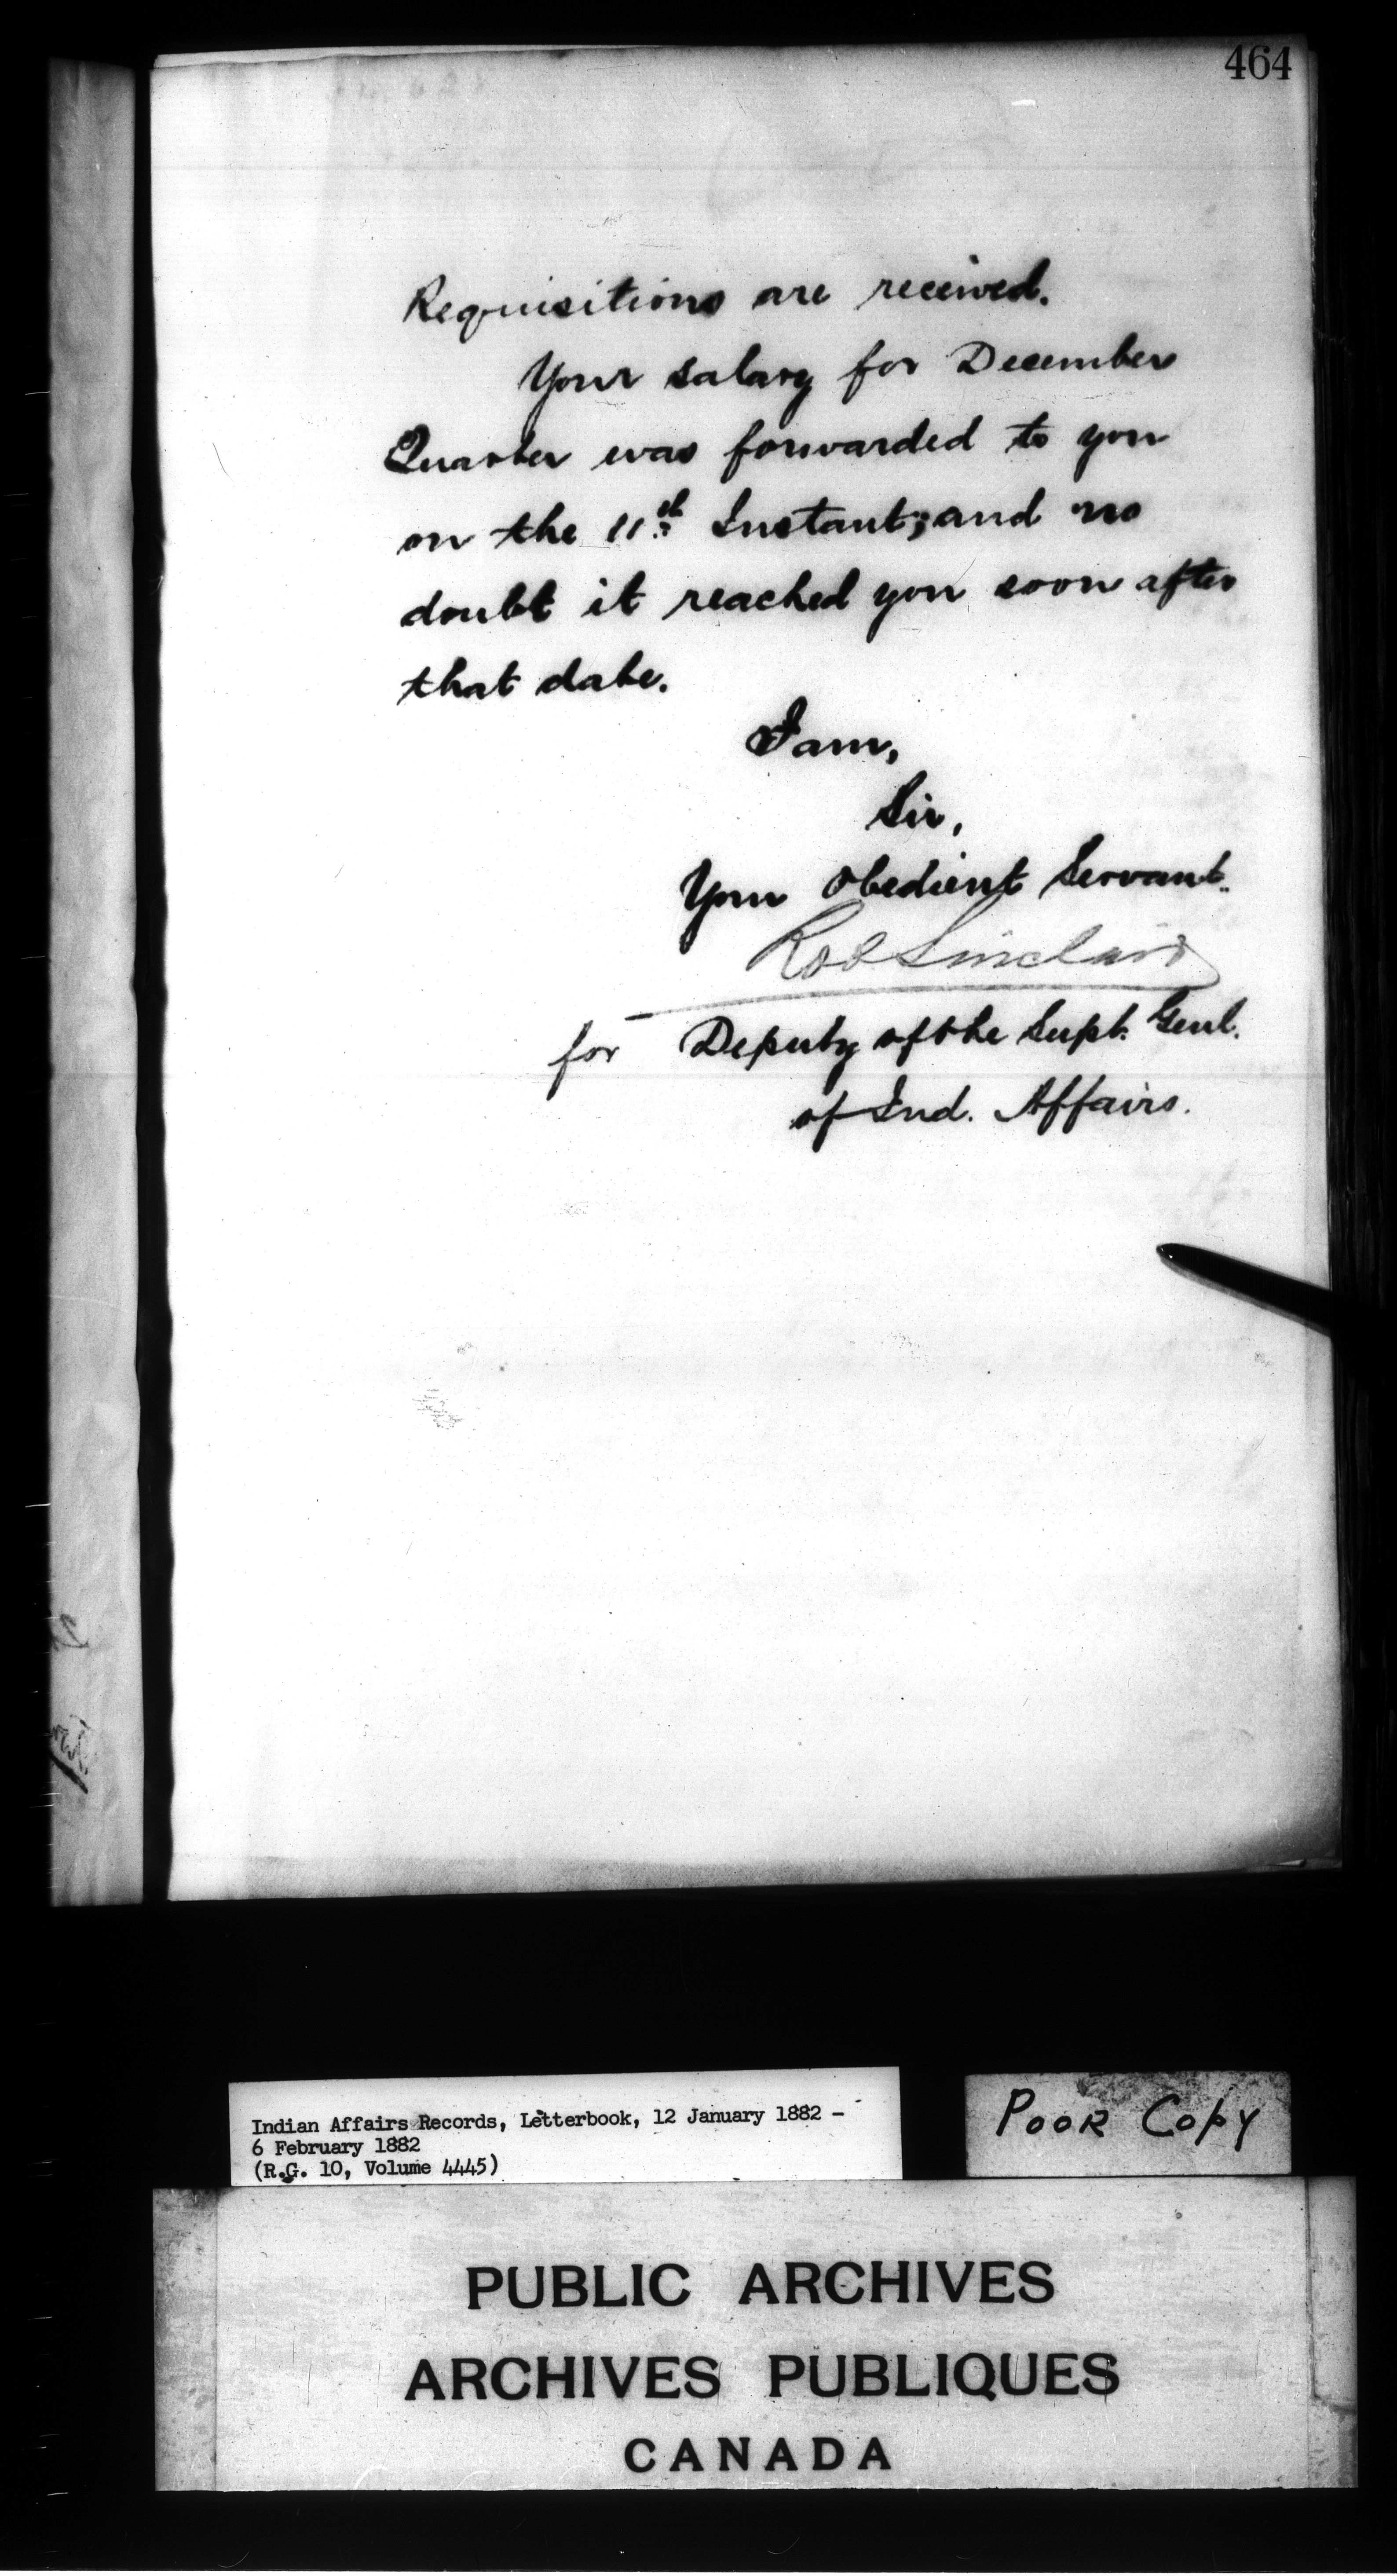 464
Requisitions are received.
Your salary for December
Quarter was forwarded to you
on the 11th Instant; and no
doubt it reached you soon after
that date.
I am,
Sir,
Your Obedient Servant.
Rob Sinclair
for Deputy of the Supt. Genl.
of Ind. Affairs.
Indian Affairs Records, Letterbook, 12 January 1882 -
6 February 1882
(R.G. 10, Volume 4445)
POOR COPY
PUBLIC ARCHIVES
ARCHIVES PUBLIQUES
CANADA